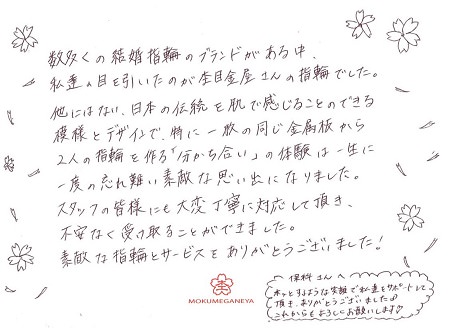 数多くの結婚指輪のブランドがある中、
私達の目を引いたのが杢目金屋さんの指輪でした。
他にはない、日本の伝統を肌で感じることのできる
模様とデザインで、特に一枚の同じ金属板から
2人の指輪を作る「分かち合い」の体験は一生に
一度の忘れ難い素敵な思い出になりました。
スタッフの皆様にも大変丁寧に対応して頂き、
不安なく受け取ることができました。
素敵な指輪とサービスをありがとうございました!
杢
MOKUMEGANEYA
保科さんへ
ホッとするような笑顔で私達をサポートして
頂き、ありがとうございました♪
これからもよろしくお願いします♪